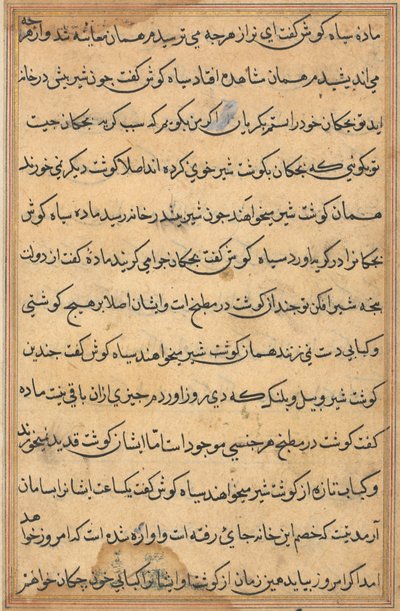 ماده سیاه کوش کفت ای نر از هرجه می ترسیدم همان معاینه شد و از هرجه
می اندیشیدم همان مشاهده افتاد سیاه کوش کفت جون شیر بیش در خانه
اید تو بجکان خود را ستم بکریان اکر من بکویم که سبب کریه بجکان جیست
تو بکوئی که بجکان بکوشت شیر خوی کرده اند اصلا کوشت دیکر نمی خورند
همان کوشت شیر میخواهند جون شیر بیشتر در خانه رسید ماده سیاه کوش
بجکانرا در کریه اورد سیاه کوش کفت بجکان جرا می کریند ماده کفت از دولت
بنجه شیر افکن تو جند از کوشت در مطبخ است و ایشان اصلا بر هیج کوشتی
و کبابی دست نمی زنند همان کوشت شیر میخواهند سیاه کوش کفت جندین
کوشت شیر و بیل و بلنک که دی روز اوردم جیزی ازان باقی نیست ماده
کفت کوشت در مطبخ هر جنسی موجود است اما ایشان کوشت قدید نمیخورند
و کبابی تازه از کوشت شیر میخواهند سیاه کوش کفت یکساعت ایشانرا بسامان
آر مدتیست که خصم این خانه جای رفته است و اوازه شده است که امروز خواهد
امد اکر امروز بیاید همین زمان از کوشت او ایشانرا کبابی خود جکان خواهم